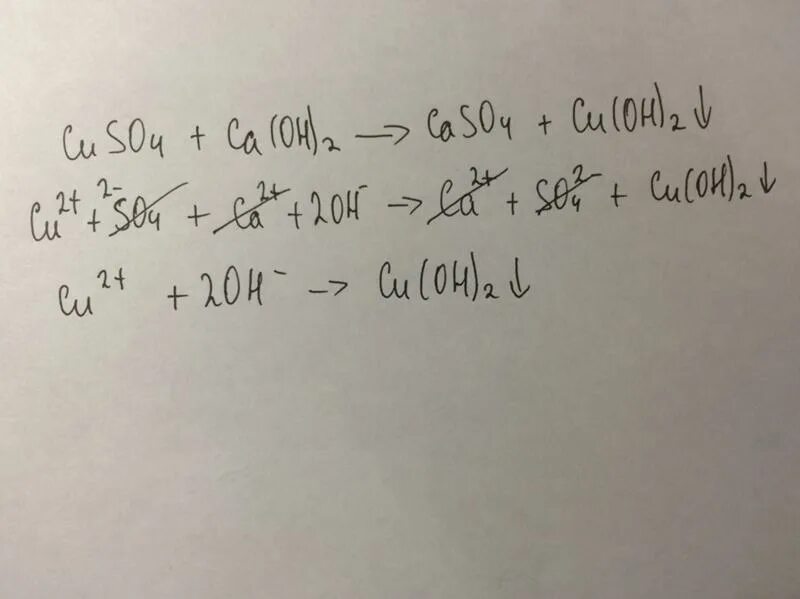 CuSO₄ + Ca(OH)₂ → CaSO₄ + Cu(OH)₂↓
Cu²⁺ + SO₄²⁻ + Ca²⁺ + 2OH⁻ → Ca²⁺ + SO₄²⁻ + Cu(OH)₂↓
Cu²⁺ + 2OH⁻ → Cu(OH)₂↓